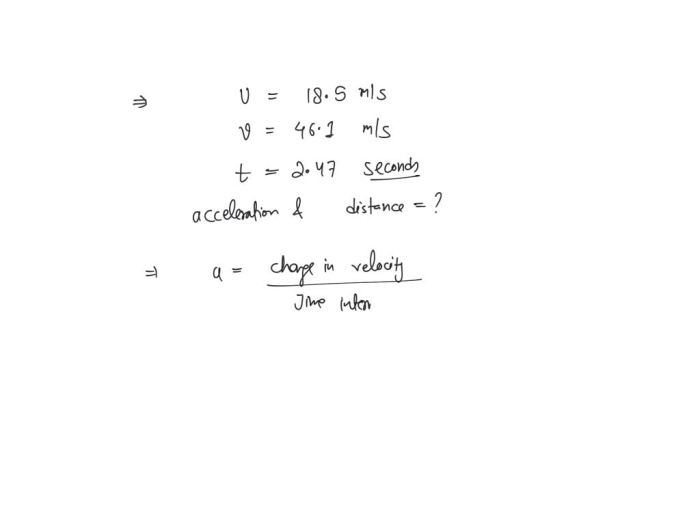 ⇒ U = 18.5 m/s
v = 46.1 m/s
t = 2.47 seconds
acceleration & distance = ?
⇒ a = change in velocity
Time inter